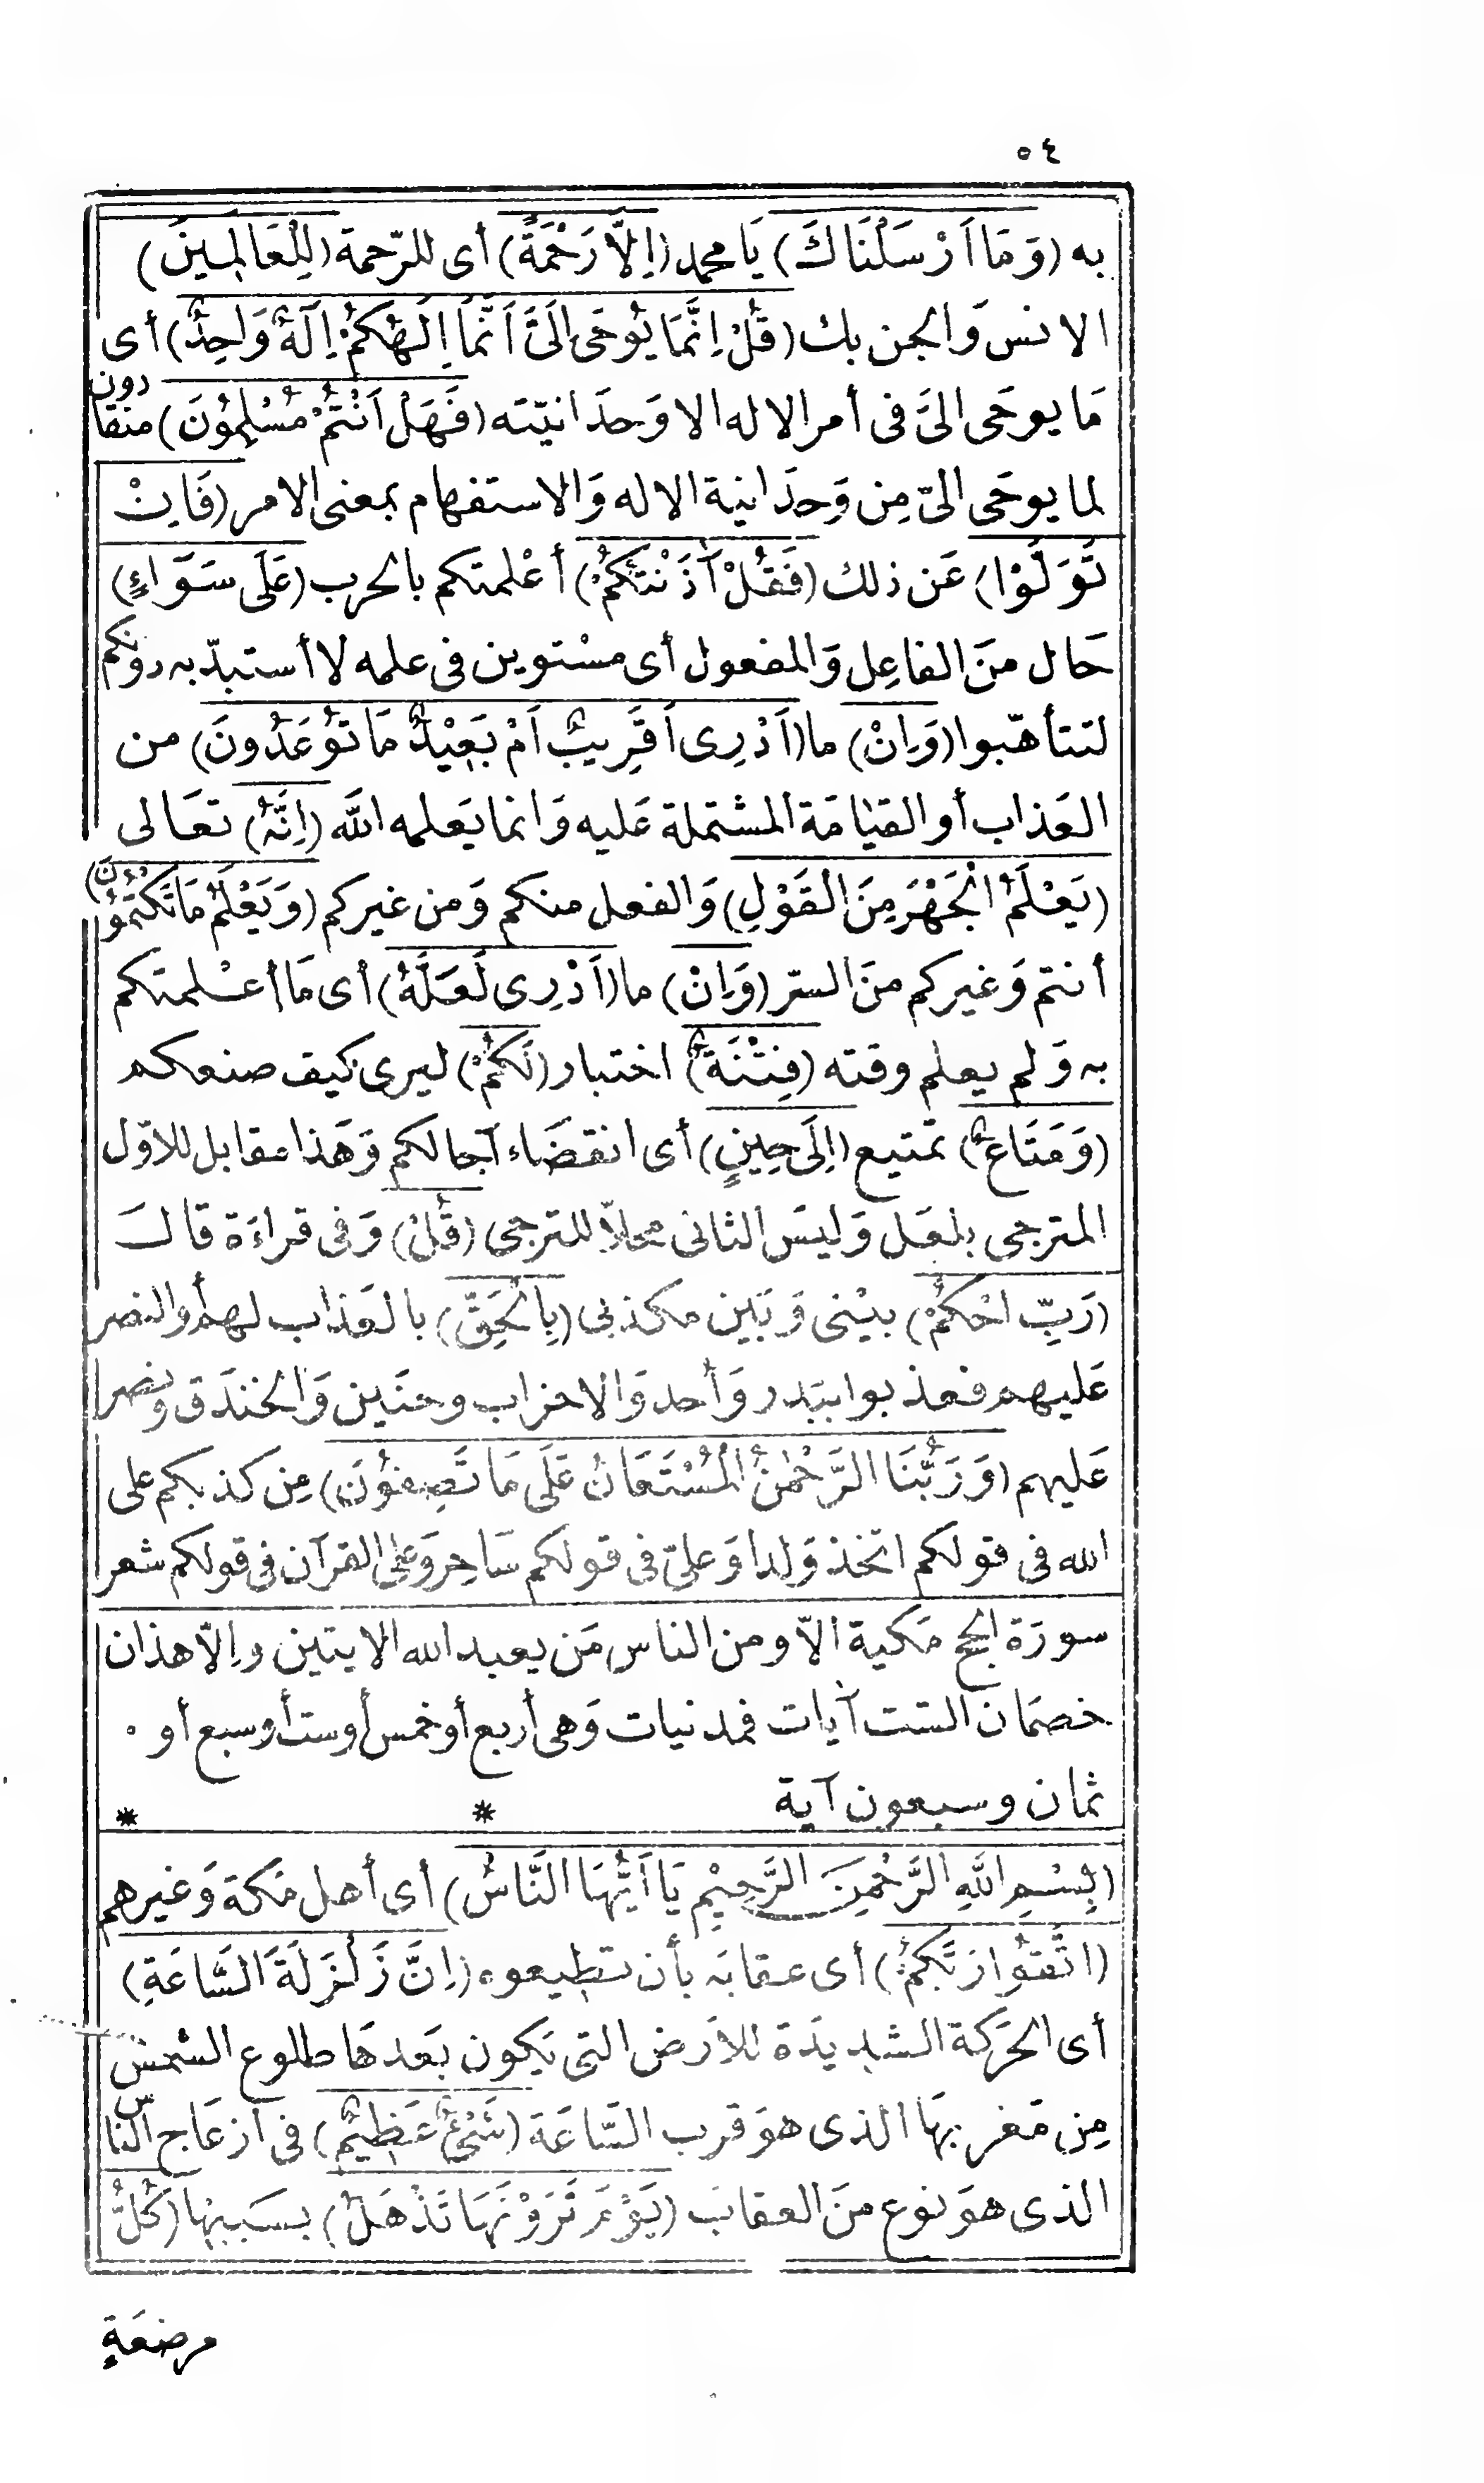 ٥٤
به (وَمَا اَرْسَلْنَاكَ) يَا محمد (اِلَّا رَحْمَةً) أى للرّحمة (لِلْعَالَمِينَ)
الانس وَالجن بك (قُلْ اِنَّمَا يُوحَى اِلَىَّ اَنَّمَا اِلَهُكُمْ اِلَهٌ وَاحِدٌ) أى
مَا يوحَى الىَّ فى أمر الاله الا وَحدَانيّتَه (فَهَلْ اَنْتُمْ مُسْلِمُونَ) منقادون
لما يوحَى الىّ مِن وَحِدَانية الاله وَالاستفهام بمعنى الامر (فَاِنْ
تَوَلَّوْا) عَن ذلك (فَقُلْ آذَنْتُكُمْ) أعْلمتكم بالحرب (عَلَى سَوَاءٍ)
حَال منَ الفاعِل وَالمفعول أى مسْتوين فى علمه لا أستبدّ به دونكم
لتتأهّبوا (وَاِنْ) ما (اَدْرِى اَقَرِيبٌ اَمْ بَعِيْدٌ مَا تُوعَدُونَ) من
العَذاب أو القيَامَة المشتملة عَليه وَانما يَعلمه الله (اِنَّهُ) تعَالى
(يَعْلَمُ الْجَهْرَ مِنَ الْقَوْلِ) وَالفعل منكم وَمن غيركم (وَيَعْلَمُ مَا تَكْتُمُونَ)
أنتم وَغيركم منَ السّر (وَاِنْ) ما (اَدْرِى لَعَلَّهُ) أى مَا أعْلمتكم
به وَلم يعلم وقته (فِتْنَةٌ) اختبار (لَكُمْ) ليرى كيف صنعكم
(وَمَتَاعٌ) تمتيع (اِلَى حِينٍ) أى انقضَاء آجالكم وَهَذا مقابل للاوّل
المترجى بلعَل وَليسَ الثانى محلاّ للترجى (قُلْ) وَفى قراءَة قالَ
(رَبِّ احْكُمْ) بيْنى وَبَين مكذبى (بِالْحَقِّ) بالعَذاب لهم أو النصر
عَليهم فعذبوا ببَدر وَأحد وَالاحزاب وحنَين وَالخندَق ونصر
عَليهم (وَرَبُّنَا الرَّحْمٰنُ الْمُسْتَعَانُ عَلَى مَا تَصِفُونَ) مِن كذبكم على
الله فى قولكم اتخذ وَلدا وَعلىّ فى قولكم سَاحِر وَعَلى القرآن فى قولكم شعر
سورَة الحج مَكية الاّ ومن الناس مَن يعبد الله الايتين وإلاّ هذان
خصمَان الست آيات فمدنيات وَهى أربع أو خمس أو ست أو سبع أو
ثمان وسبعون آية * *
(بِسْمِ اللَّهِ الرَّحْمٰنِ الرَّحِيْمِ يَا اَيُّهَا النَّاسُ) أى أهل مَكة وَغيرهم
(اتَّقُوا رَبَّكُمْ) أى عقابَه بأن تطيعوه (اِنَّ زَلْزَلَةَ السَّاعَةِ)
أى الحَركة الشديدَة للاَرض التى يَكون بَعدهَا طلوع الشمس
مِن مَغربهَا الذى هوَ قرب السَّاعَة (شَىْءٌ عَظِيمٌ) فى ازعَاج الناس
الذى هوَ نوع منَ العقاب (يَوْمَ تَرَوْنَهَا تَذْهَلُ) بسَببهَا (كُلُّ
مرضعَةٍ